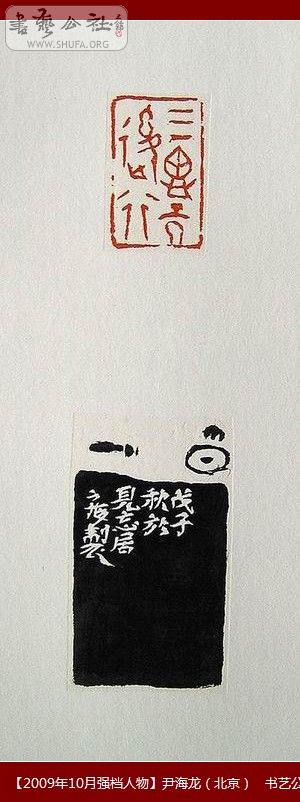 書藝公社
WWW.SHUFA.ORG
三思而
後行
戊子
秋於
居
【2009年10月强档人物】尹海龙（北京） 书艺公